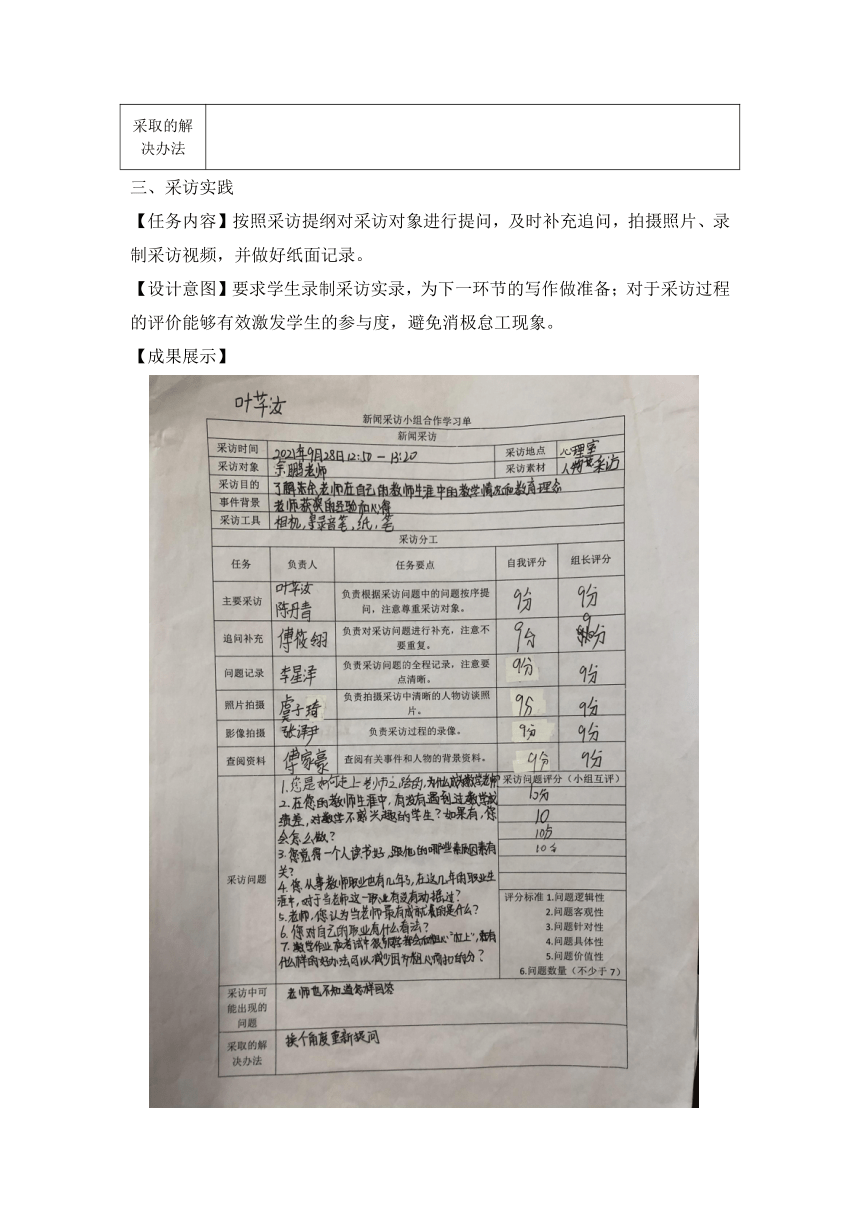 采取的解
决办法
三、采访实践
【任务内容】按照采访提纲对采访对象进行提问，及时补充追问，拍摄照片、录
制采访视频，并做好纸面记录。
【设计意图】要求学生录制采访实录，为下一环节的写作做准备；对于采访过程
的评价能够有效激发学生的参与度，避免消极怠工现象。
【成果展示】
叶芊汝
新闻采访小组合作学习单
新闻采访
采访时间 2021年9月28日12:50－13:20 采访地点 心理室
采访对象 余鹏老师 采访素材 人物采访
采访目的 了解余老师在自己的教师生涯中的教学情况和教育理念
事件背景 老师获奖的经验和心得
采访工具 相机,录音笔,纸,笔
采访分工
任务 负责人 任务要点 自我评分 组长评分
主要采访 叶芊汝 陈丹青 负责根据采访问题中的问题按序提 9分 9分
问，注意尊重采访对象。
追问补充 傅筱翎 负责对采访问题进行补充，注意不 9分 9分
要重复。
问题记录 李星泽 负责采访问题的全程记录，注意要 9分 9分
点清晰。
照片拍摄 虞子琦 负责拍摄采访中清晰的人物访谈照 9分 9分
片。
影像拍摄 张泽尹 负责采访过程的录像。 9分 9分
查阅资料 傅家豪 查阅有关事件和人物的背景资料。 9分 9分
采访问题
1.您是如何走上老师之路的,为什么成为数学老师
2.在您的教师生涯中,有没有遇到过数学成
绩差,对数学不感兴趣的学生?如果有,您
会怎么做?
3.您觉得一个人读书好,跟他的哪些素质因素有
关?
4.您从事教师职业也有几年了,在这几年的职业生
涯中,对于当老师这一职业有没有动摇过?
5.老师,您认为当老师最有成就感的是什么?
6.您对自己的职业有什么看法?
7.数学作业或考试中很多同学都会
什么样的好办法可以减少因为粗心而扣的分?
采访问题评分（小组互评）
10分
10
10分
10分
评分标准 1.问题逻辑性
2.问题客观性
3.问题针对性
4.问题具体性
5.问题价值性
6.问题数量（不少于7）
采访中可
能出现的
问题
老师也不知道怎样回答
采取的解
决办法
换个角度重新提问